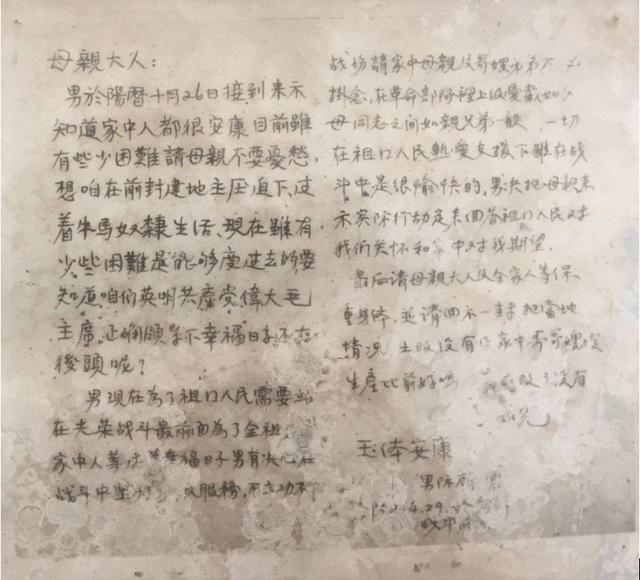 母親大人：
男於陽曆十月26日接到来示
知道家中人都很安康目前雖
有些少困難請母親不要憂愁，
想咱在前封建地主压迫下，过
着牛馬奴隸生活、現在雖有
少些困難是能够度过去的要
知道咱们英明共產党偉大毛
主席，正确領导下幸福日子还在
後頭呢？
男現在為了祖囗人民需要站
在光荣战斗最前面為了全祖
家中人等过着幸福日子男有决心在
战斗中坚 服務，不立功不
战场請家中母親及哥嫂弟弟不必
掛念，在革命部隊裡上级愛戴如父
母同志之间如親兄弟一般 一切
在祖囗人民熱愛支援下雖在战
斗中是很愉快的，男决把母親来
示实际行动是来回答祖囗人民对
我们关怀和家中对我期望．
最后请母親大人民全家人等保
重身体，並请回示一封把當地
情况 土改没有 家中哥哥嫂嫂
生產比前好吗 改了没有
玉体安康
男陈
4.29.於